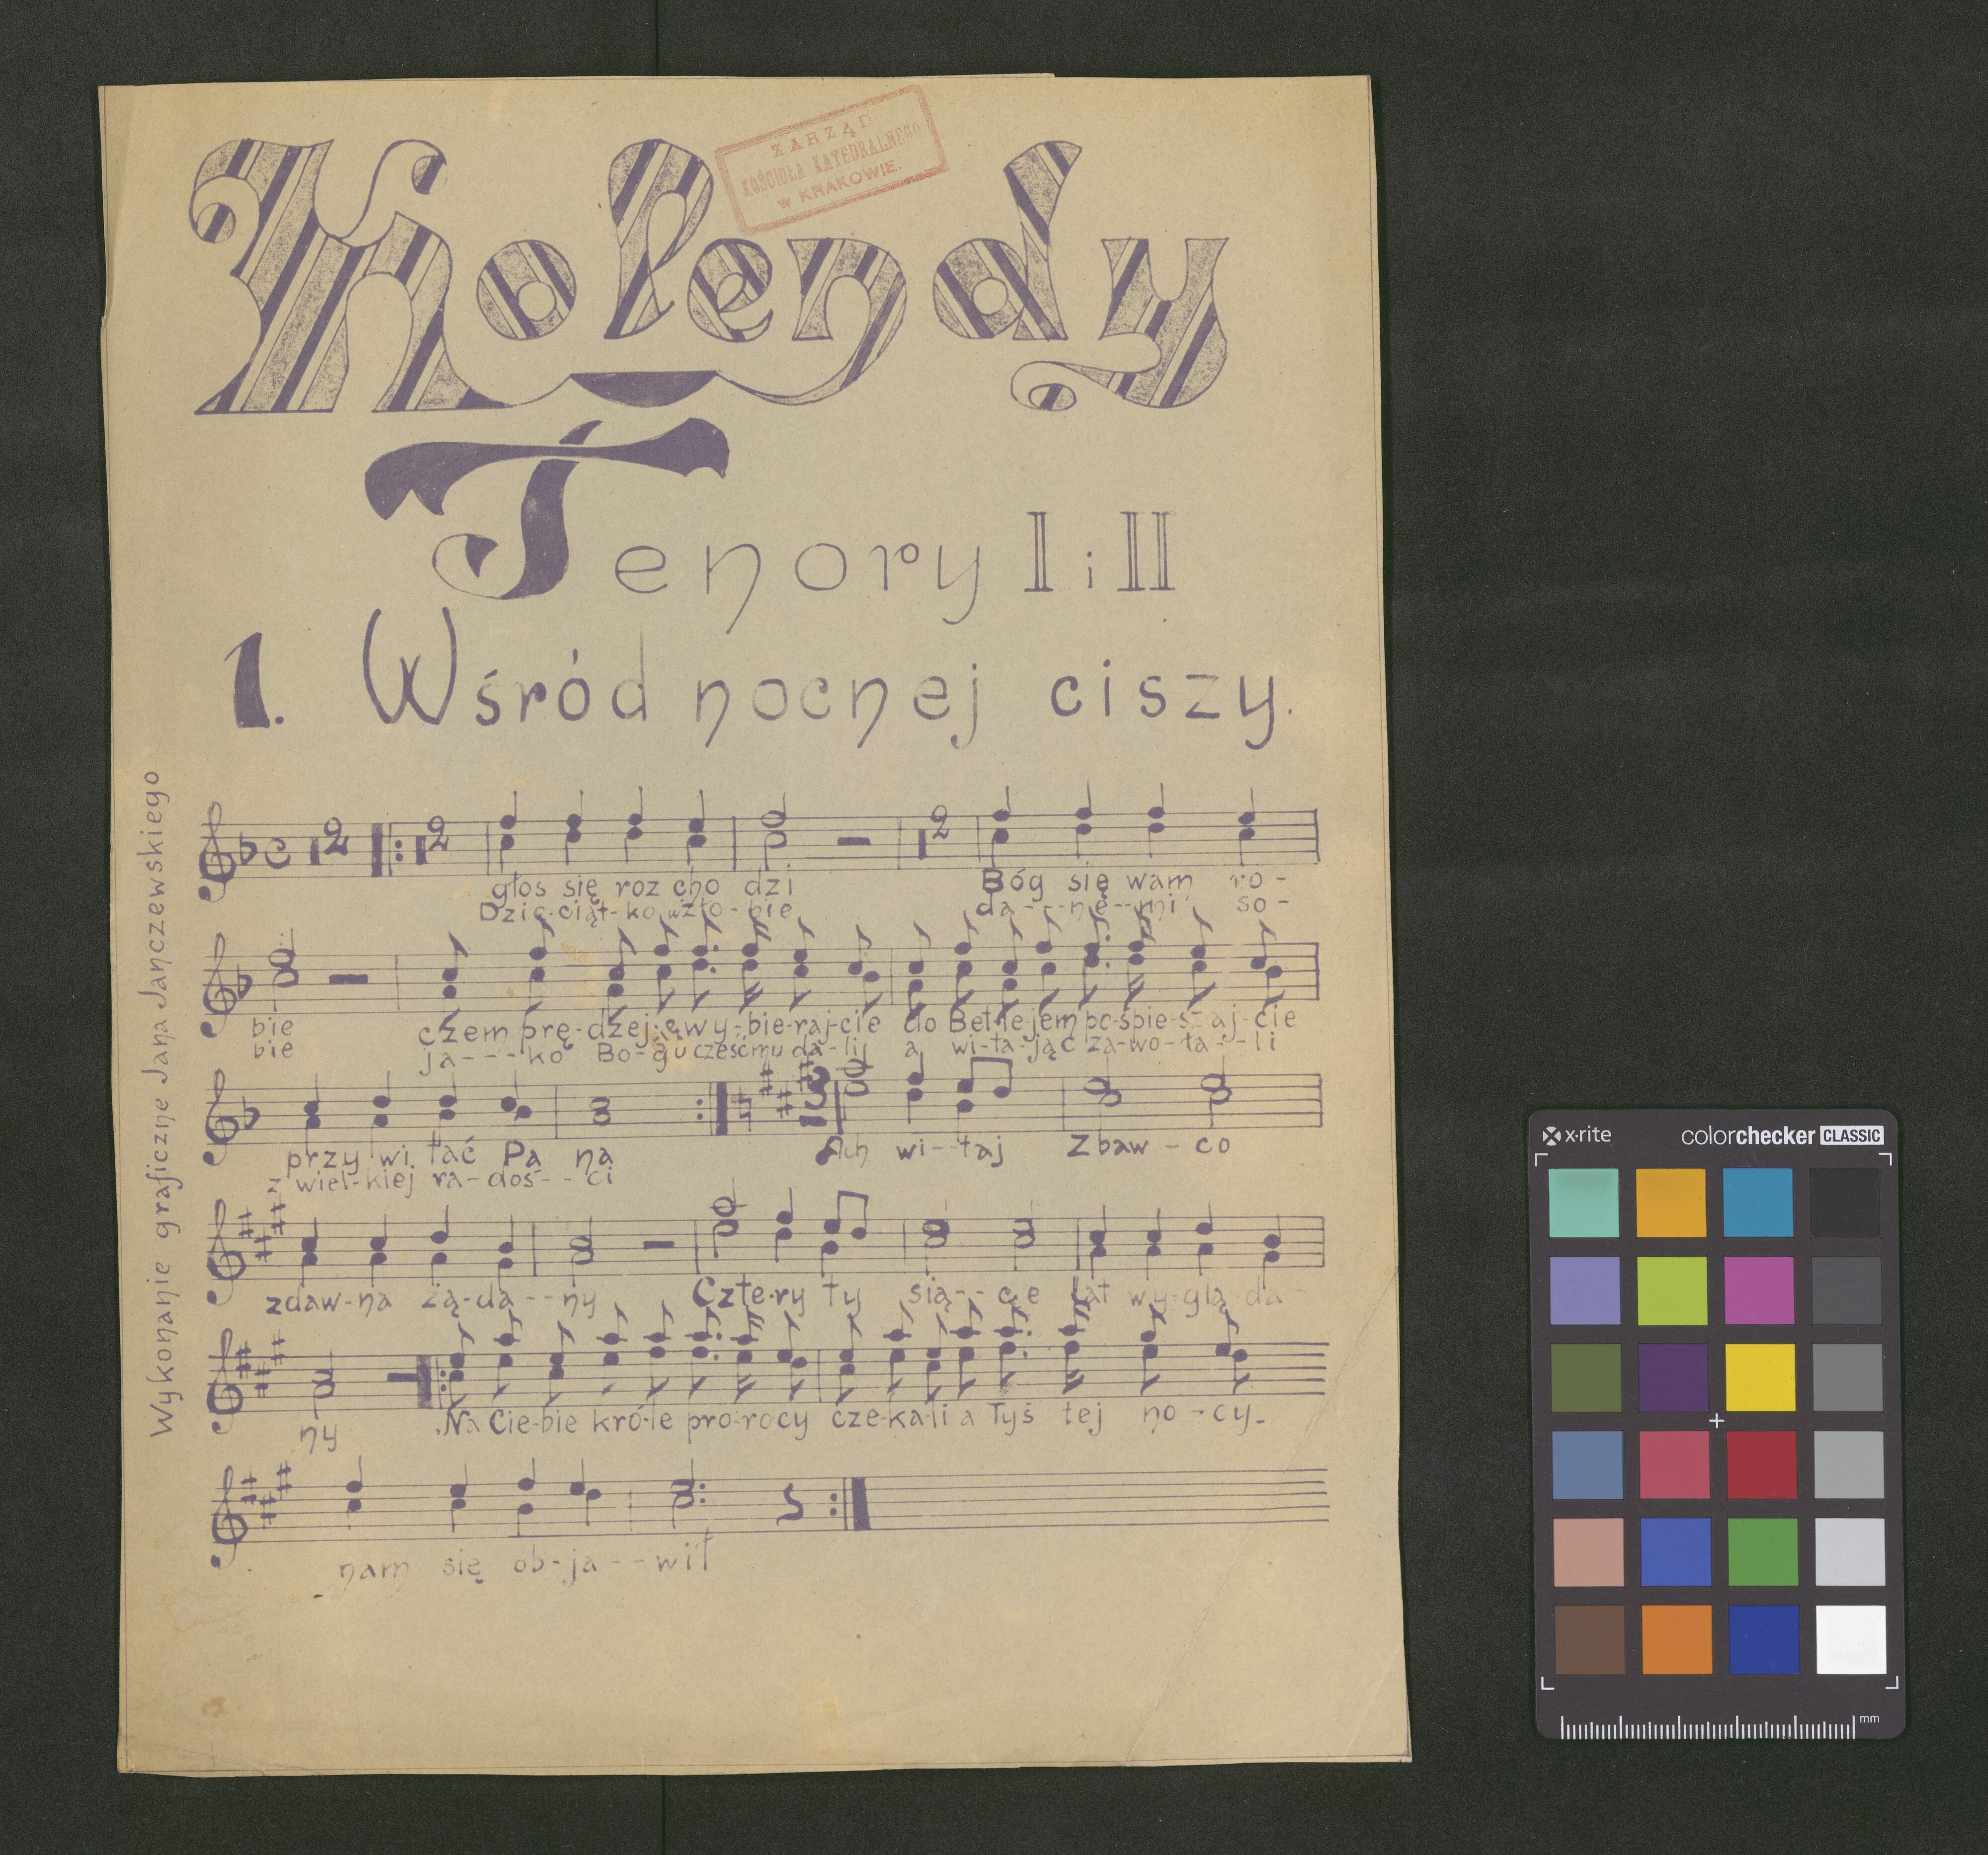 ZARZĄD
KOŚCIOŁA KATEDRALNEGO
w KRAKOWIE.
Kolendy
Tenory I i II
1. Wśród nocnej ciszy.
Wykonanie graficzne Jana Janczewskiego
2 2 2
głos się roz cho dzi Bóg się wam ro-
Dzie-ciąt-ko w żło-bie da---ne--mi so-
bie czem prę-dzej wy-bie-raj-cie do Bet-le-jem po-śpie-szaj-cie
bie ja---ko Bo-gu cześć mu da-li a wi-ta-jąc za-wo-ła--li
3
przy wi tać Pa na Ach wi--taj Zbaw-co
z wiel-kiej ra-doś--ci
zdaw-na żą-da--ny Czte-ry ty sią--ce lat wy-glą-da-
ny Na Cie-bie kró-le pro-rocy cze-ka-li a Tyś tej no-cy-
nam się ob-ja--wił
x-rite colorchecker CLASSIC
mm